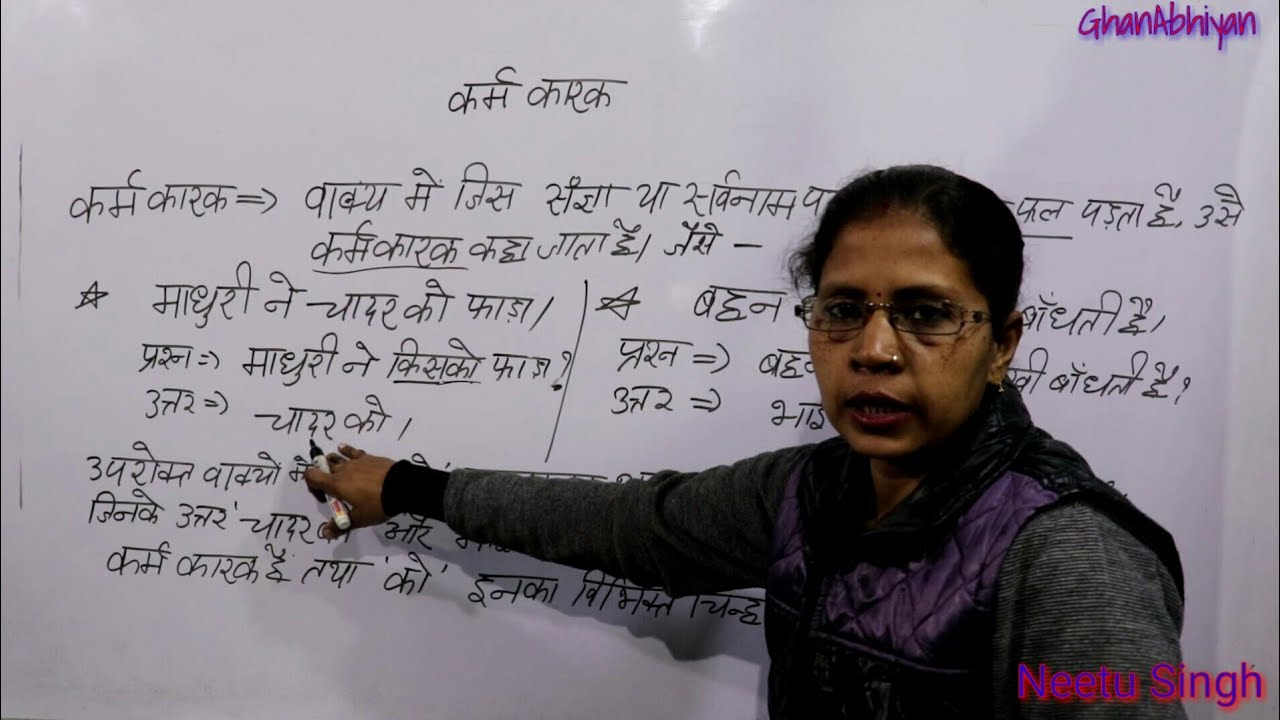 GhanAbhiyan
कर्म कारक
कर्म कारक => वाक्य में जिस संज्ञा या सर्वनाम फल पड़ता है, उसे
कर्मकारक कहा जाता है। जैसे -
माधुरी ने चादर को फाड़ा।
प्रश्न => माधुरी ने किसको फाड़ा?
उत्तर => चादर को।
बहन बाँधती है।
प्रश्न => बहन बाँधती है?
उत्तर =>
उपरोक्त वाक्यों में
जिनके उत्तर 'चादर और
कर्म कारक हैं तथा 'को' इनका विभक्ति चिन्ह
Neetu Singh